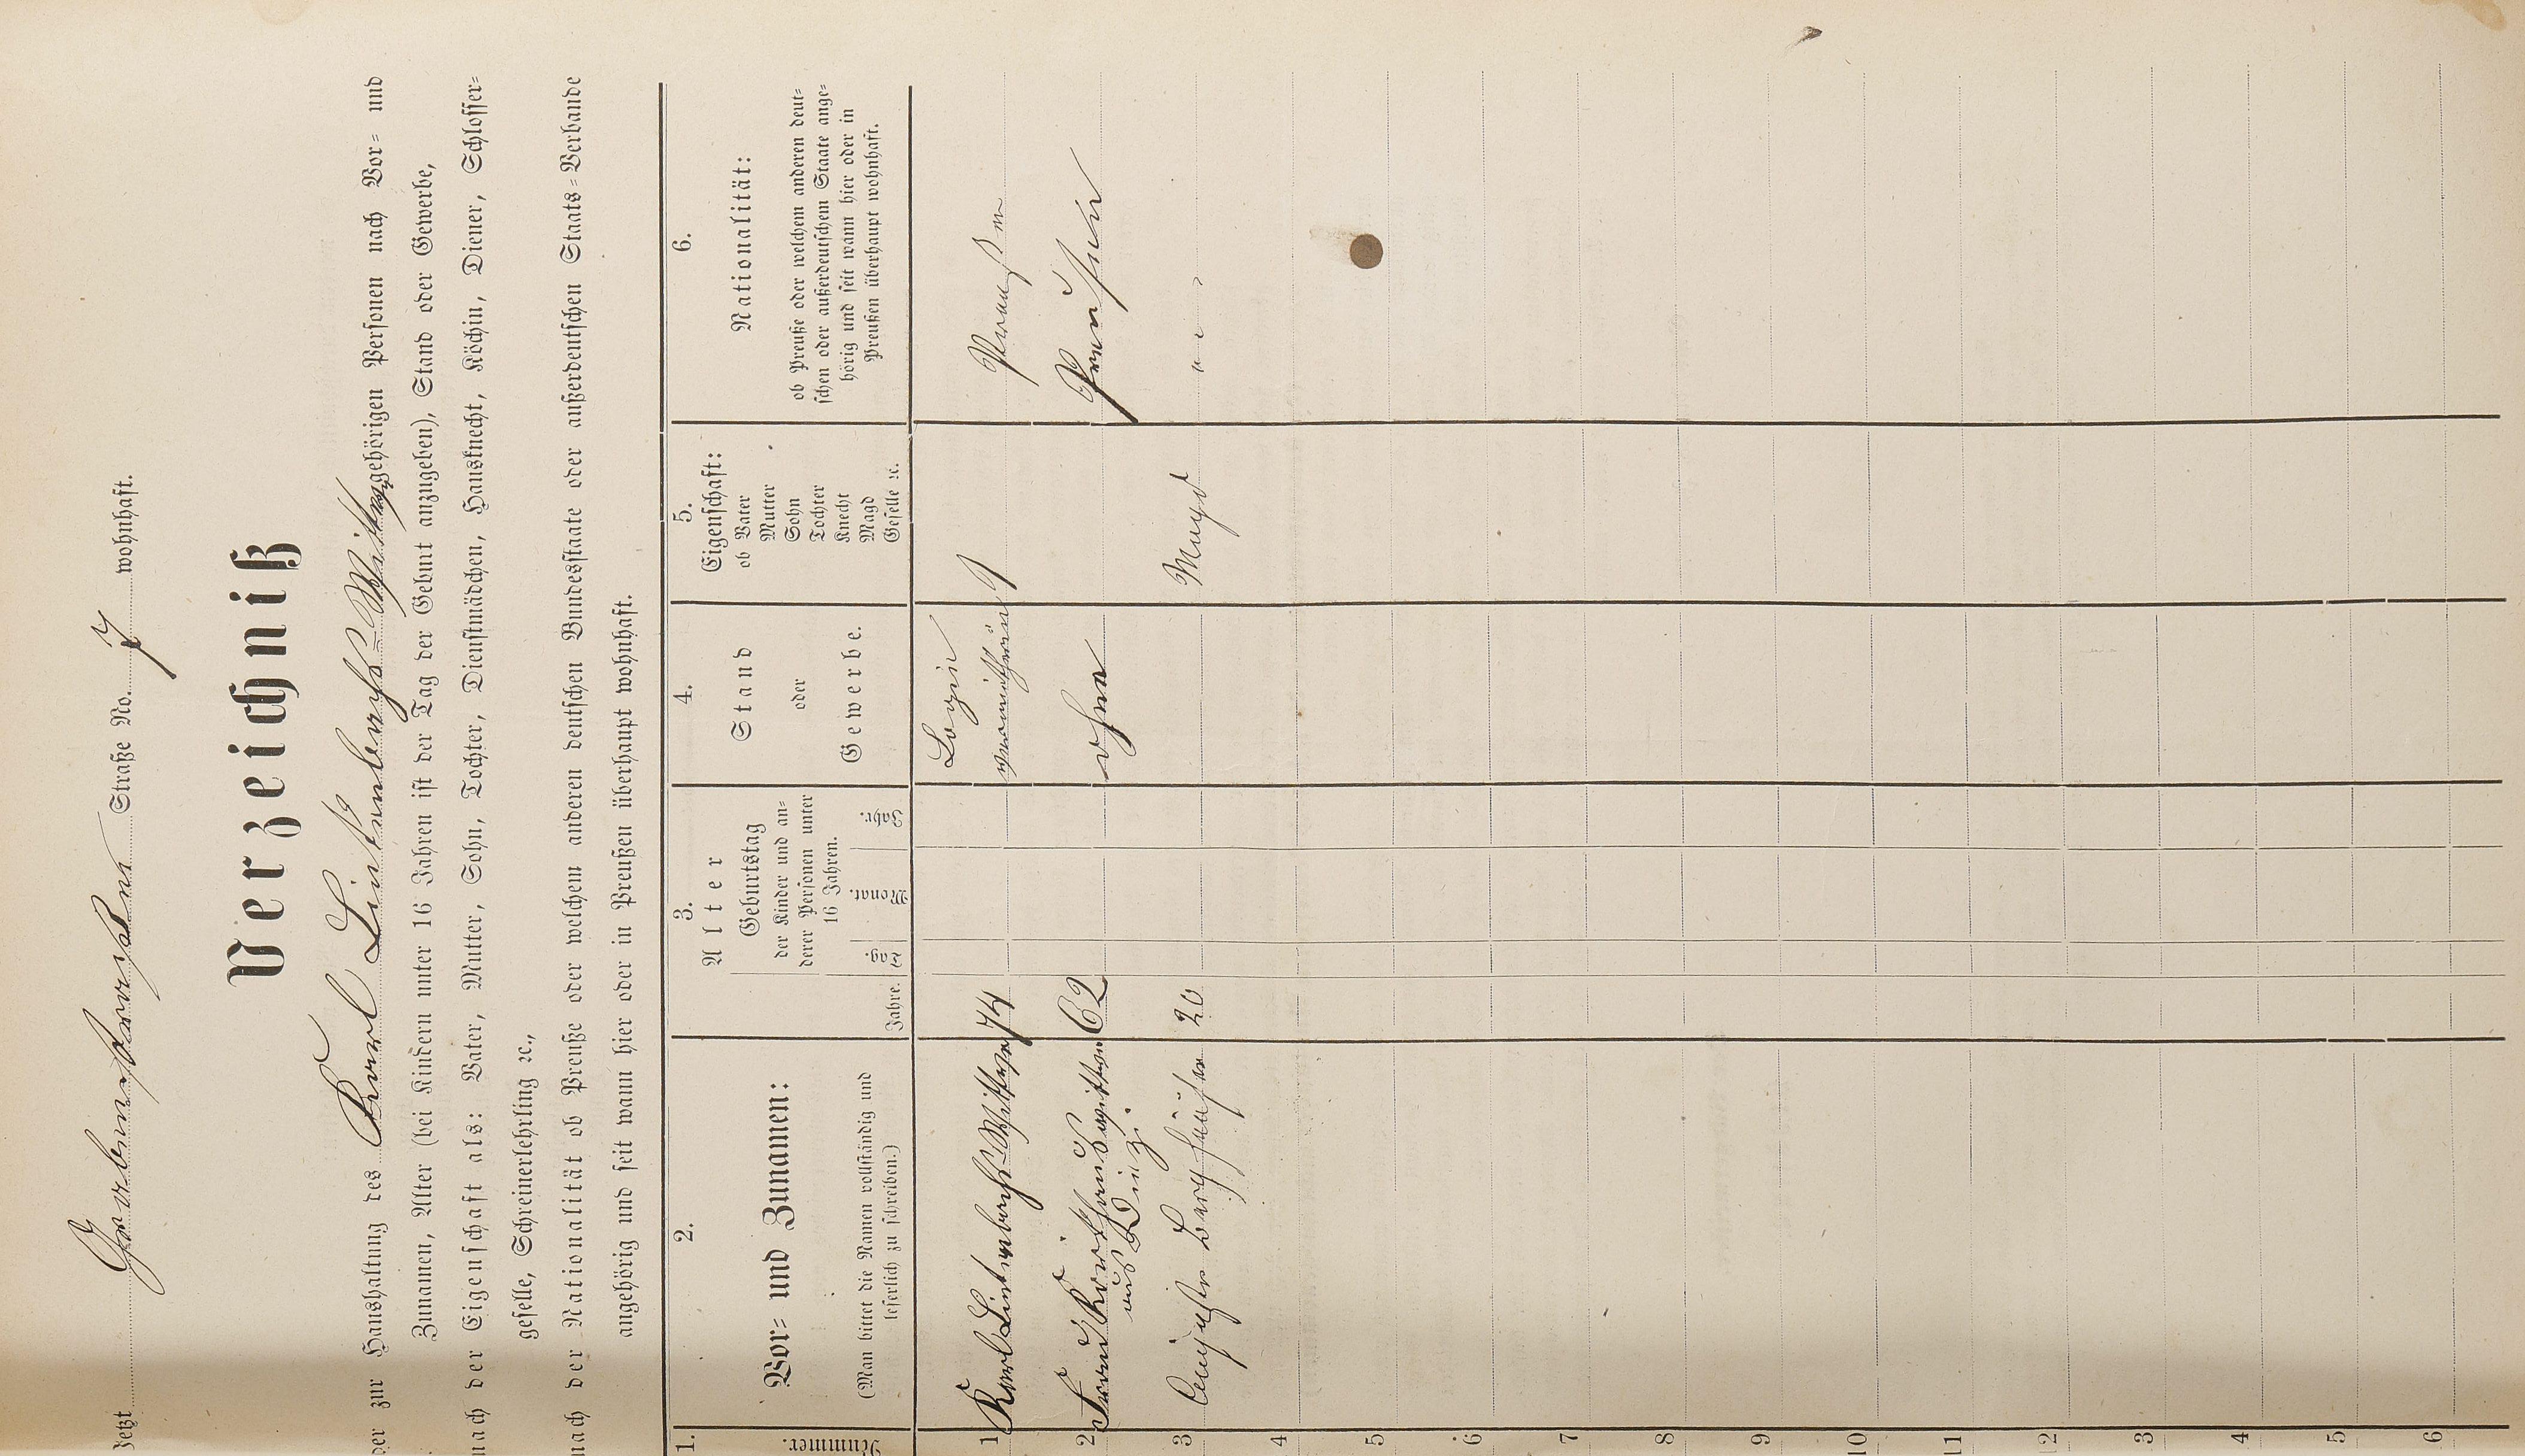 Jetzt Grabenstraße Straße No. 7 wohnhaft.
Verzeichniß
der zur Haushaltung des Karl Lichtenberchs Witwe gehörigen Personen nach Vor- und
Zunamen, Alter (bei Kindern unter 16 Jahren ist der Tag der Geburt anzugeben), Stand oder Gewerbe,
nach der Eigenschaft als: Vater, Mutter, Sohn, Tochter, Dienstmädchen, Hausknecht, Köchin, Diener, Schlosser-
geselle, Schreinerlehrling ꝛc.,
nach der Nationalität ob Preuße oder welchem anderen deutschen Bundesstaate oder außerdeutschen Staats-Verbande
angehörig und seit wann hier oder in Preußen überhaupt wohnhaft.
1. 2. 3. 4. 5. 6.
Nummer.
Vor- und Zunamen:
(Man bittet die Namen vollständig und
leserlich zu schreiben.)
Alter
Jahre.
Geburtstag
der Kinder und an-
derer Personen unter
16 Jahren.
Tag. Monat. Jahr.
Stand
oder
Gewerbe.
Eigenschaft:
ob Vater
Mutter
Sohn
Tochter
Knecht
Magd
Geselle ꝛc.
Nationalität:
ob Preuße oder welchem anderen deut-
schen oder außerdeutschem Staate ange-
hörig und seit wann hier oder in
Preußen überhaupt wohnhaft.
Logie
1 Karl 74 vermitherin
2 62 ohne Preusen
aus
3 20 Magd " " "
4
5
6
7
8
9
10
11
12
3
4
5
6